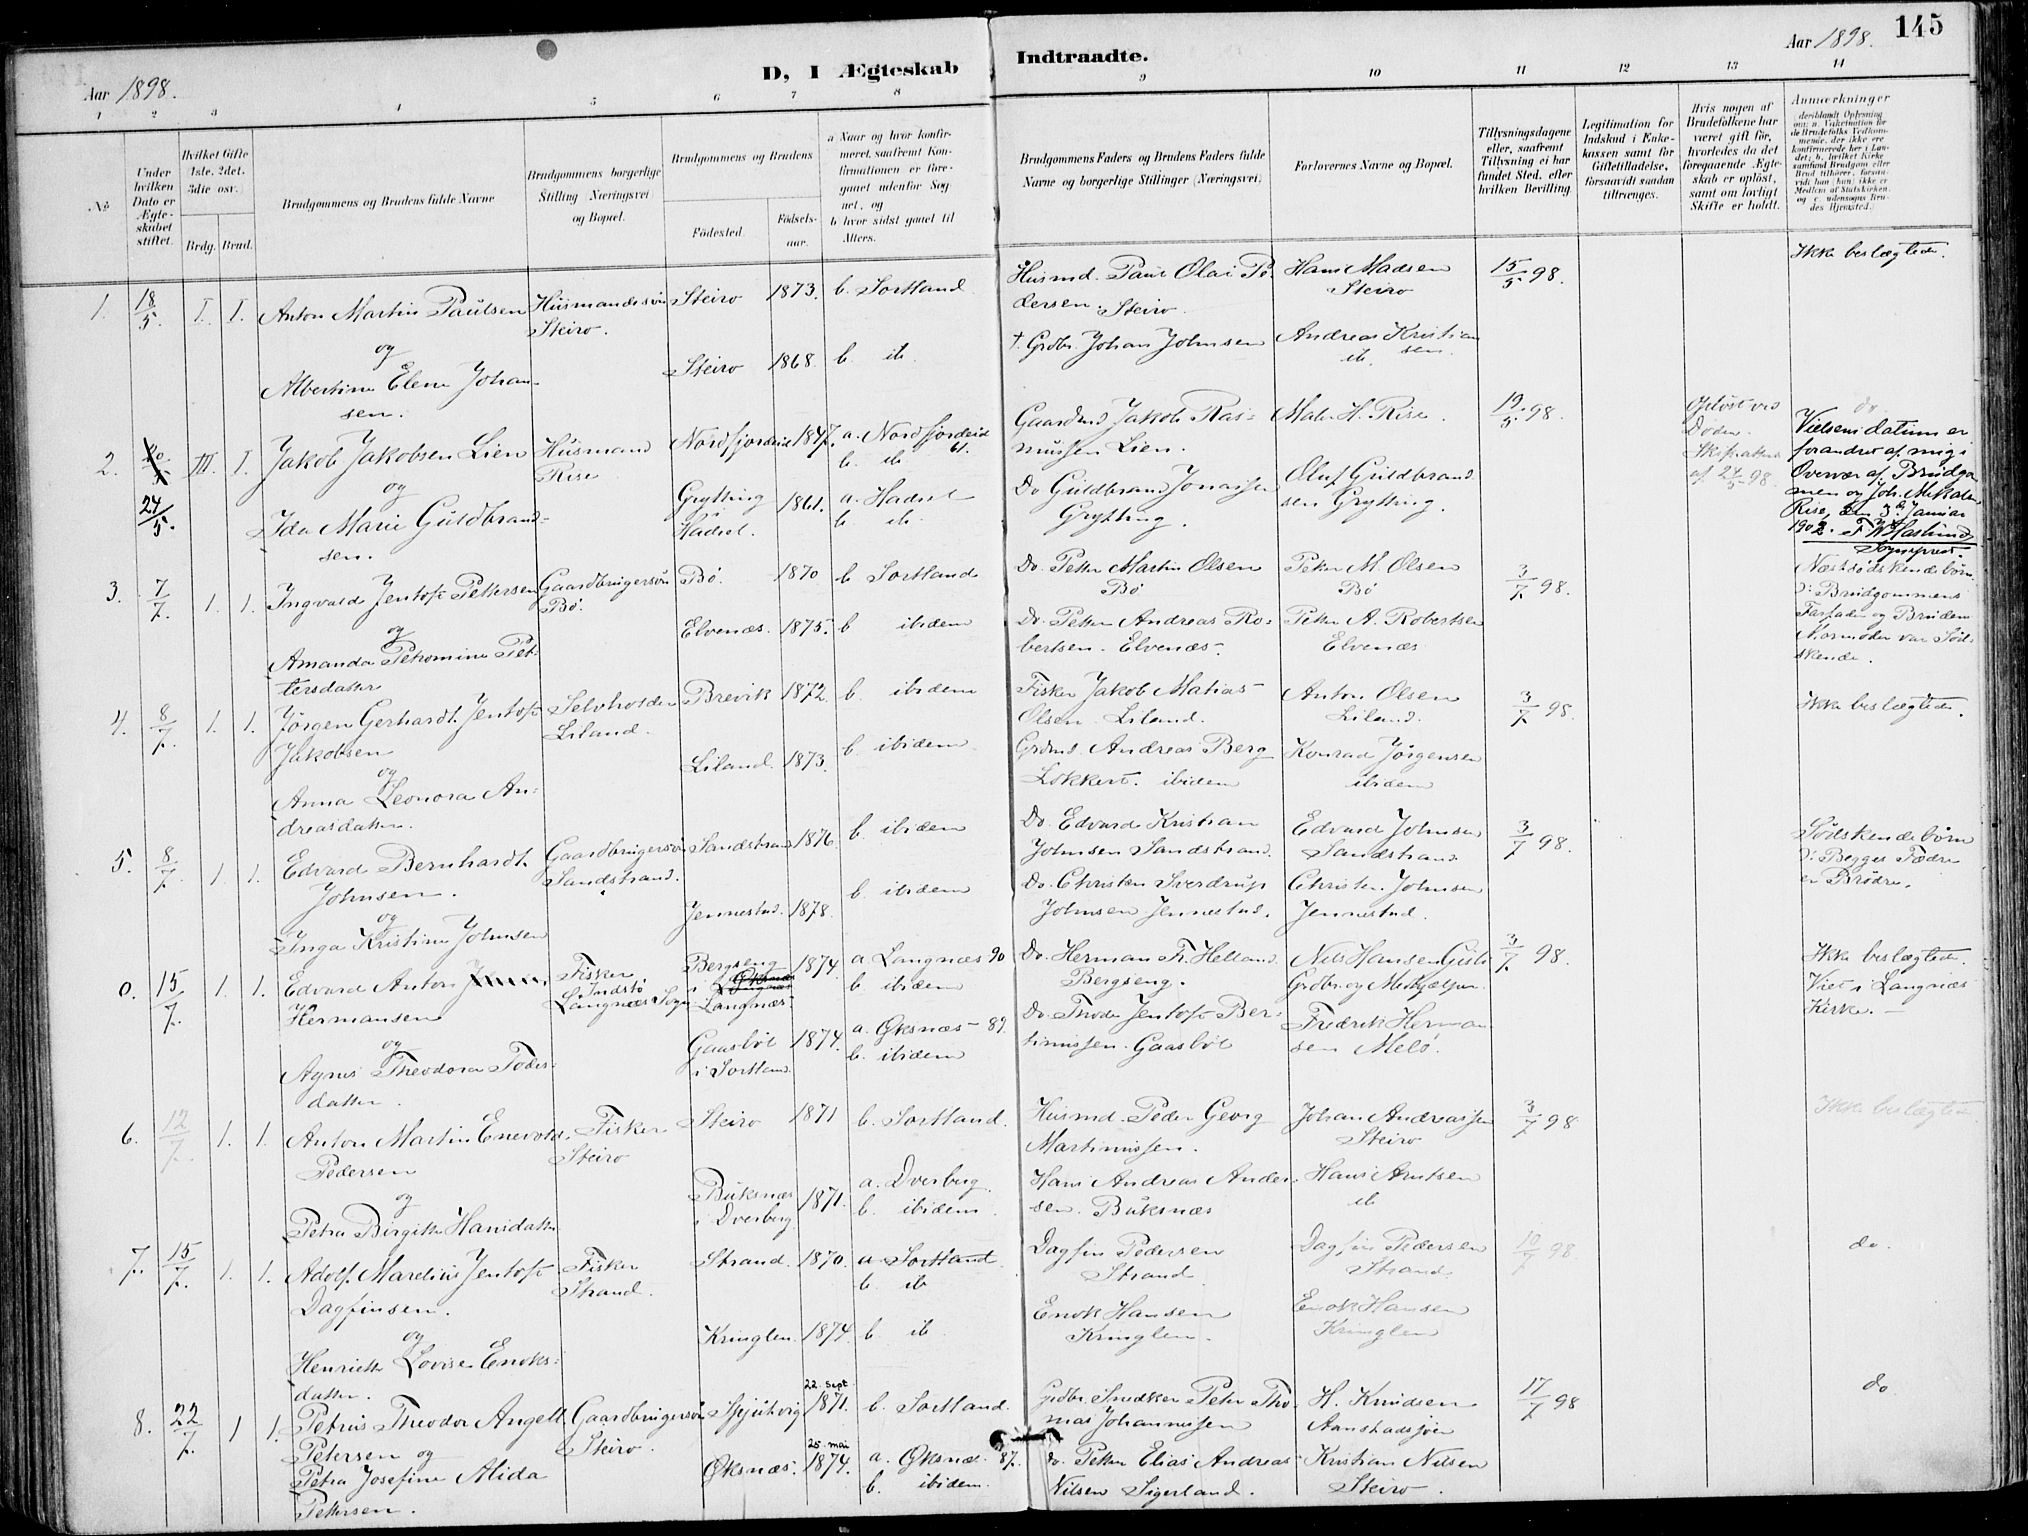 145
Aar 1898.
D, I Ægteskab
Indtraadte.
Aar 1898.
1
2
3
4
5
6
7
8
9
10
11
12
13
14
No
Under
hvilken
Dato er
Ægte-
skabet
stiftet.
Hvilket Gifte
1ste. 2det.
3die osv.
Brdg.
Brud.
Brudgommens og Brudens fulde Navne
Brudgommens borgerlige
Stilling Næringsvei
og Bopæl.
Brudgommens og Brudens
Fødested.
Fødsels-
aar.
a Naar og hvor konfir-
meret, saafremt Kon-
firmationen er fore-
gaaet udenfor Sog-
net, og
b hvor sidst gaaet til
Alters.
Brudgommens Faders og Brudens Faders fulde
Navne og borgerlige Stillinger (Næringsvei)
Forlovernes Navne og Bopæl.
Tillysningsdagene
eller, saafremt
Tillysning ei har
fundet Sted, efter
hvilken Bevilling.
Legitimation for
Indskud i Enke-
kassen samt for
Giftetilladelse,
forsaavidt saadan
tiltrænges.
Hvis nogen af
Brudefolkene har
været gift før,
hvorledes da det
foregaaende Ægte-
skab er opløst,
samt om lovligt
Skifte er holdt.
Anmærkninger
deriblandt Oplysning
om: a. Vakcination for
de Brudefolks Vedkom-
mende, der ikke ere
konfirmerede her i Lan-
det; b. hvilket Kirke-
samfund Brudgom eller
Brud tilhører, forsaa-
vidt han (hun) ikke er
Medlem af Statskirken,
og c. udensogns Bru-
des Hjemsted.
1. 18/5. I. I. Anton Martin Paulsen
og
Albertine Elene Johan-
sen.
Husmandssøn
Steiro.
Steiro 1873. b. Sortland
Steiro 1868. b. ib.
Husmd. Paul Olai Pe-
dersen. Steiro.
† Grdbr. Johan Johnsen
Hans Madsen
Steiro
Andreas Kristian
sen. ib.
15/5 98.
Ikke beslægtede.
2. 24/5. III. I. Jakob Jakobsen Lien
og
Ida Marie Guldbrand-
sen.
Husmand
Rise
Nordfjordeid 1847. a. Nordfjordeid
61.
b. ib
Grytting
i
Hadsel. 1861. a. Hadsel
b. ib.
Gaardmd Jakob Ras-
mussen Lien.
Do Guldbrand Jonassen
Grytting.
Mak. H. Rise.
Oluf Guldbrand
sen Grytting.
19/5 98.
Opløst ved
Døden.
Skifteattest
af 24/5 98.
do.
Vielsens datum er
forandret af mig i
Overvær af Brudgo
men og Joh. Mikalsen
Rise, den 3. Januar
1902. F. W. Haslund,
Sogneprest.
3. 7/7. 1. 1. Ingvald Jentoft Pettersen
og
Amanda Petromine Pet-
tersdatter
Gaardbrugersøn
Bø.
Bø. 1870 b Sortland
Elvenæs. 1875. b ibidem
Do. Petter Martin Olsen
Bø
Do. Petter Andreas Ro-
bertsen. Elvenæs.
Peter M. Olsen
Bø
Peter A. Robertsen
Elvenæs
3/7. 98.
Næstsødskendebørn
ɔ: Brudgommens
Farfader og Brudens
Mormoder var Sød-
skende.
4. 8/7. 1. 1. Jørgen Gerhardt Jentoft
Jakobsen
og
Anna Leonora An-
dreasdatter.
Selvholden
Liland.
Brevik 1872. b ibidem
Liland. 1873. b ibidem
Fisker Jakob Matias
Olsen. Liland.
Grdmd. Andreas Berg
Lokkert. ibidem
Anton Olsen
Liland.
Konrad Jørgensen
ibidem
3/7 98.
Ikke beslægtede.
5. 8/7. 1. 1. Edvard Bernhardt
Johnsen.
og
Inga Kristine Johnsen
Gaardbrugersøn
Sandstrand.
Sandstrand 1876. b. ibidem
Jennestad. 1878. b. ibidem
Do. Edvard Kristian
Johnsen Sandstrand.
Do. Christen Sverdrup
Johnsen Jennestad.
Edvard Johnsen
Sandstrand
Christen Johnsen
Jennestad.
3/7 98.
Sødskendebørn
ɔ: Begges Fædre
er Brødre.
0. 15/7. 1. 1. Edvard Anton
Hermansen
og
Agnes Theodora Todes-
datter.
Fisker
Indstø
Langnæs Sogn
Bergseng
i
Langnæs 1874. a. Langnæs 90
b. ibidem
Gaasbøl
i Sortland. 1874. a. Øksnæs 89.
b. ibidem
Do. Herman Fr. Helland
Bergseng.
Do. Thode Jentoft Ber-
tinussen. Gaasbøl
Nils Hansen
Grdbr. og Medhjælper.
Fredrik Herman
sen Melø.
3/7. 98.
Ikke beslægtede.
Viet i Langnæs
Kirke.
6. 12/7. 1. 1. Anton Martin Enevold
Pedersen
og
Petra Birgitte Hansdatter
Fisker
Steiro
Steiro 1871 b. Sortland.
Buksnæs
i Dverberg 1871. a. Dverberg.
b. ibidem.
Husmd. Peder Georg
Martinussen.
Hans Andreas Ander-
sen. Buksnæs
Johan Andreassen
Steiro
Hans Arntsen
ib
3/7 98
Ikke beslægtede
7. 15/7. 1. 1. Adolf Marelius Jentoft
Dagfinsen.
og
Henriette Lovise Enoks-
datter.
Fisker
Strand.
Strand. 1870. a. Sortland
b. ib
Kringlen. 1874. b. ib.
Dagfin Pedersen
Strand
Enok Hansen
Kringlen.
Dagfin Pedersen
Strand
Enok Hansen
Kringlen
10/7 98.
do.
8. 22/7. 1 1. Petrus Theodor Angell
Petersen og
Petra Josefine Alida
Pettersen.
Gaardbrugersøn
Steiro.
Spjutvig 22. Sept 1871. b. Sortland.
Øksnæs. 25. mai 1874. a. Øksnæs. 87.
b. ibidem.
Grdbr. Snedker Peter Tho-
mas Johannessen
do. Petter Elias Andreas
Nilsen Sigerland.
H. Knudsen
Aanstadsjøen
Kristian Nilsen
Steiro.
17/7 98
do